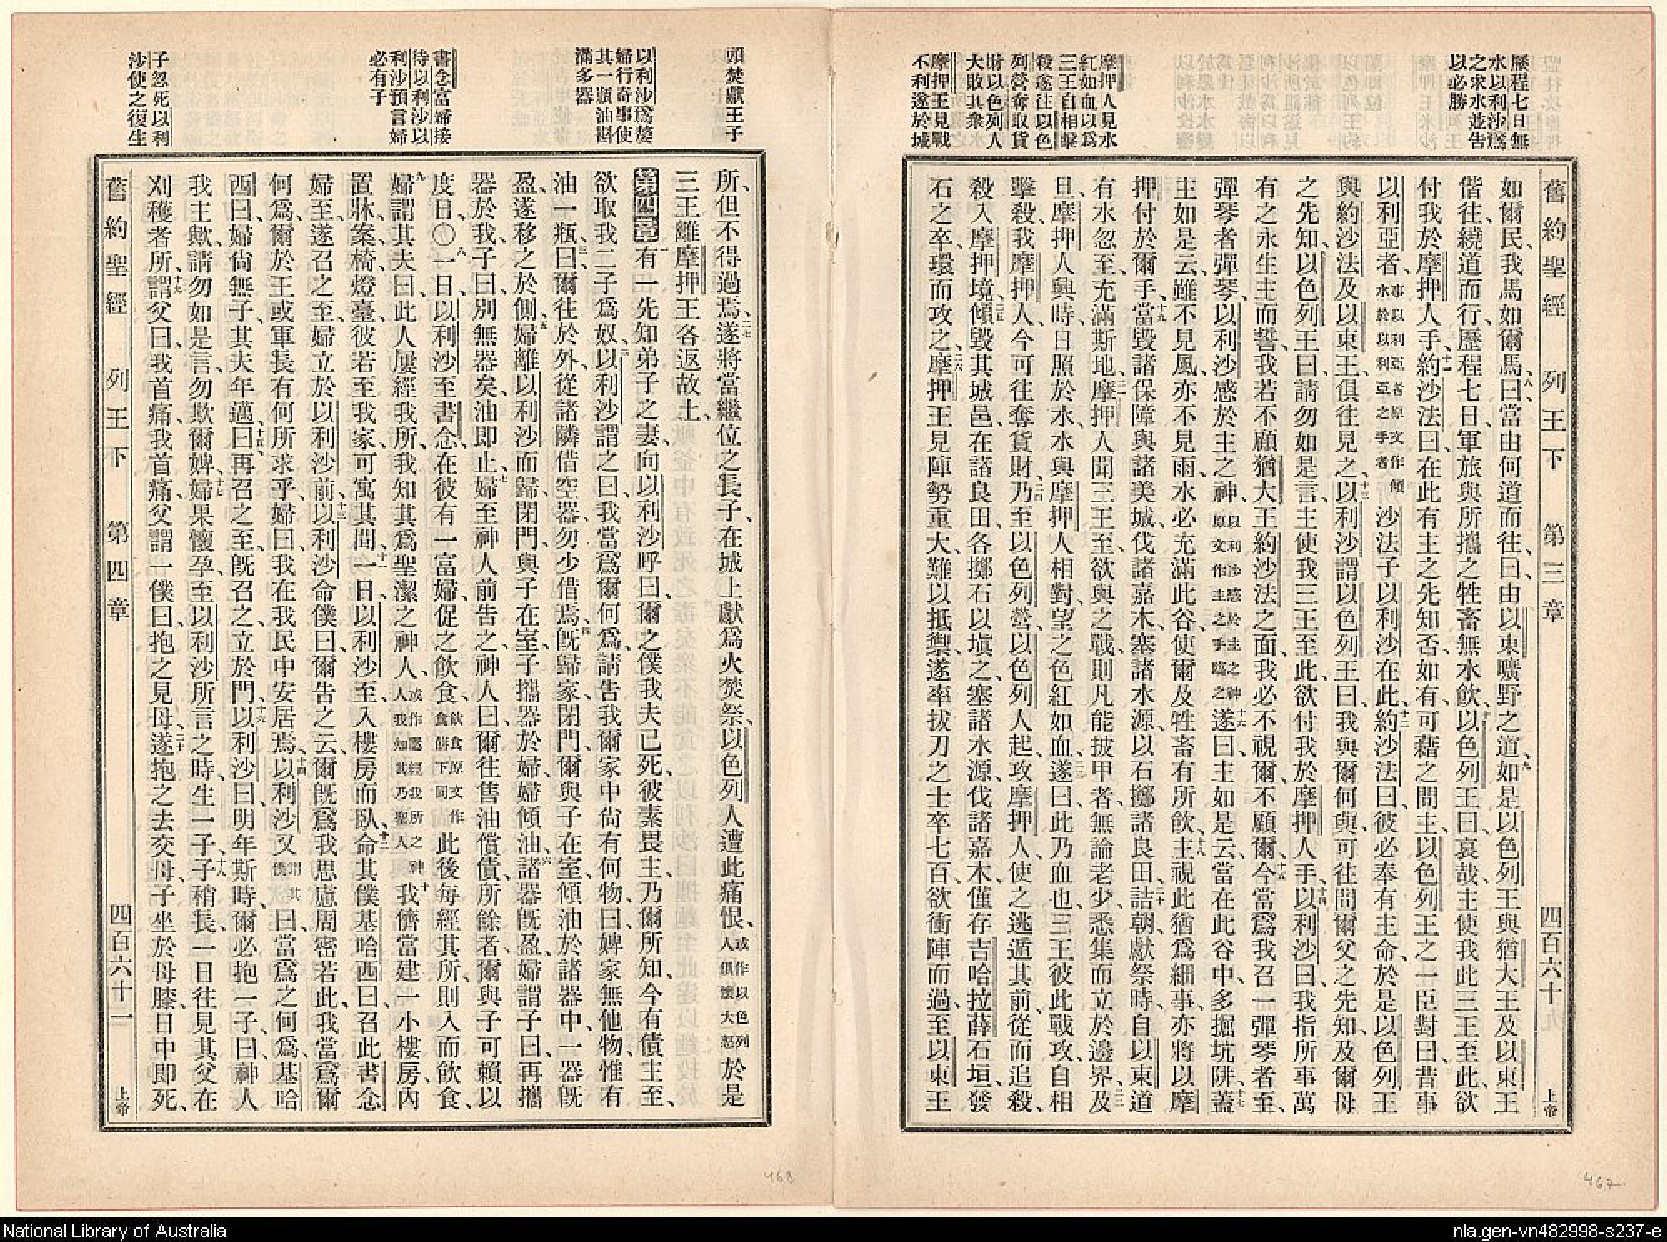 歷程七日無
水以利沙爲
之求水並吿
以必勝
摩押人見水
紅如血以爲
三王自相擊
殺遂往以色
列營奪取貨
財以色列人
大敗其衆
摩押王見戰
不利遂於城
舊約聖經 列王下 第三章 四百六十九 上帝
如爾民、我馬如爾馬、八曰、當由何道而往、曰、由以東曠野之道、九如是以色列王與猶大王及以東王
偕往、繞道而行、歷程七日、軍旅與所攜之牲畜無水飲、十以色列王曰、哀哉、主使我此三王至此、欲
付我於摩押人手、十一約沙法曰、在此有主之先知否、如有、可藉之問主、以色列王之一臣對曰、昔事
以利亞者、事以利亞者原文作傾水於以利亞之手者沙法子以利沙在此、十二約沙法曰、彼必奉有主命、於是以色列王
與約沙法及以東王、俱往見之、十三以利沙謂以色列王曰、我與爾何與、可往問爾父之先知及爾母
之先知、以色列王曰、請勿如是言、主使我三王至此、欲付我於摩押人手、十四以利沙曰、我指所事萬
有之永生主而誓、我若不顧猶大王約沙法之面、我必不視爾、不顧爾、十五今當爲我召一彈琴者至、
彈琴者彈琴、以利沙感於主之神、以利沙感於主之神原文作主之手臨之十六遂曰、主如是云、當在此谷中多掘坑阱、十七蓋
主如是云、雖不見風、亦不見雨、水必充滿此谷、使爾及牲畜有所飲、十八主視此猶爲細事、亦將以摩
押付於爾手、十九當毀諸保障與諸美城、伐諸嘉木、塞諸水源、以石擲諸良田、二十詰朝、獻祭時、自以東道
有水忽至、充滿斯地、二一摩押人聞三王至、欲與之戰、則凡能披甲者、無論老少、悉集而立於邊界、二二及
旦、摩押人興時、日照於水、水與摩押人相對、望之色紅如血、二三遂曰、此乃血也、三王彼此戰攻、自相
擊殺、我摩押人今可往奪貨財、二四乃至以色列營、以色列人起、攻摩押人、使之逃遁其前、從而追殺、
殺入摩押境、二五傾毀其城邑、在諸良田各擲石以塡之、塞諸水源、伐諸嘉木、僅存吉哈拉薛石垣、發
石之卒、環而攻之、二六摩押王見陣勢重大、難以抵禦、遂率拔刀之士卒七百、欲衝陣而過、至以東王
頭焚獻王子
以利沙爲嫠
婦行奇事使
其一瓶油斟
滿多器
書念富婦接
待以利沙以
利沙預言婦
必有子
子忽死以利
沙使之復生
所、但不得過焉、二七遂將當繼位之長子、在城上獻爲火焚祭、以色列人遭此痛恨、或作以色列人俱懷大怒於是
三王離摩押王、各返故土、
第四章 一有一先知弟子之妻、向以利沙呼曰、爾之僕我夫已死、彼素畏主、乃爾所知、今有債主至、
欲取我二子爲奴、二以利沙謂之曰、我當爲爾何爲、請吿我、爾家中尙有何物、曰、婢家無他物、惟有
油一瓶、三曰、爾往於外、從諸隣借空器、勿少借焉、四旣歸家、閉門、爾與子在室、傾油於諸器中、一器旣
盈、遂移之於側、五婦離以利沙而歸、閉門、與子在室、子攜器於婦、婦傾油、六諸器旣盈、婦謂子曰、再攜
器於我、子曰、別無器矣、油卽止、七婦至神人前吿之、神人曰、爾往售油償債、所餘者、爾與子可賴以
度日、〇八一日、以利沙至書念、在彼有一富婦、促之飲食、飲食原文作食餅下同此後每經其所、則入而飲食、
九婦謂其夫曰、此人屢經我所、我知其爲聖潔之神人、或作屢經我所之神人我知其乃聖人十我儕當建一小樓房、內
置牀案椅燈臺、彼若至我家、可寓其間、十一一日、以利沙至、入樓房而臥、十二命其僕基哈西曰、召此書念
婦至、遂召之至、婦立於以利沙前、十三以利沙命僕曰、爾吿之云、爾旣爲我思慮周密若此、我當爲爾
何爲、爾於王或軍長、有何所求乎、婦曰、我在我民中安居焉、十四以利沙又謂其僕曰、當爲之何爲、基哈
西曰、婦尙無子、其夫年邁、十五曰、再召之至、旣召之、立於門、十六以利沙曰、明年斯時、爾必抱一子、曰、神人
我主歟、請勿如是言、勿欺爾婢、十七婦果懷孕、至以利沙所言之時、生一子、十八子稍長、一日往見其父在
刈穫者所、十九謂父曰、我首痛、我首痛、父謂一僕曰、抱之見母、二十遂抱之去交母、子坐於母膝、日中卽死、
舊約聖經 列王下 第四章 四百六十一 上帝
468
467
National Library of Australia
nla.gen-vn482998-s237-e